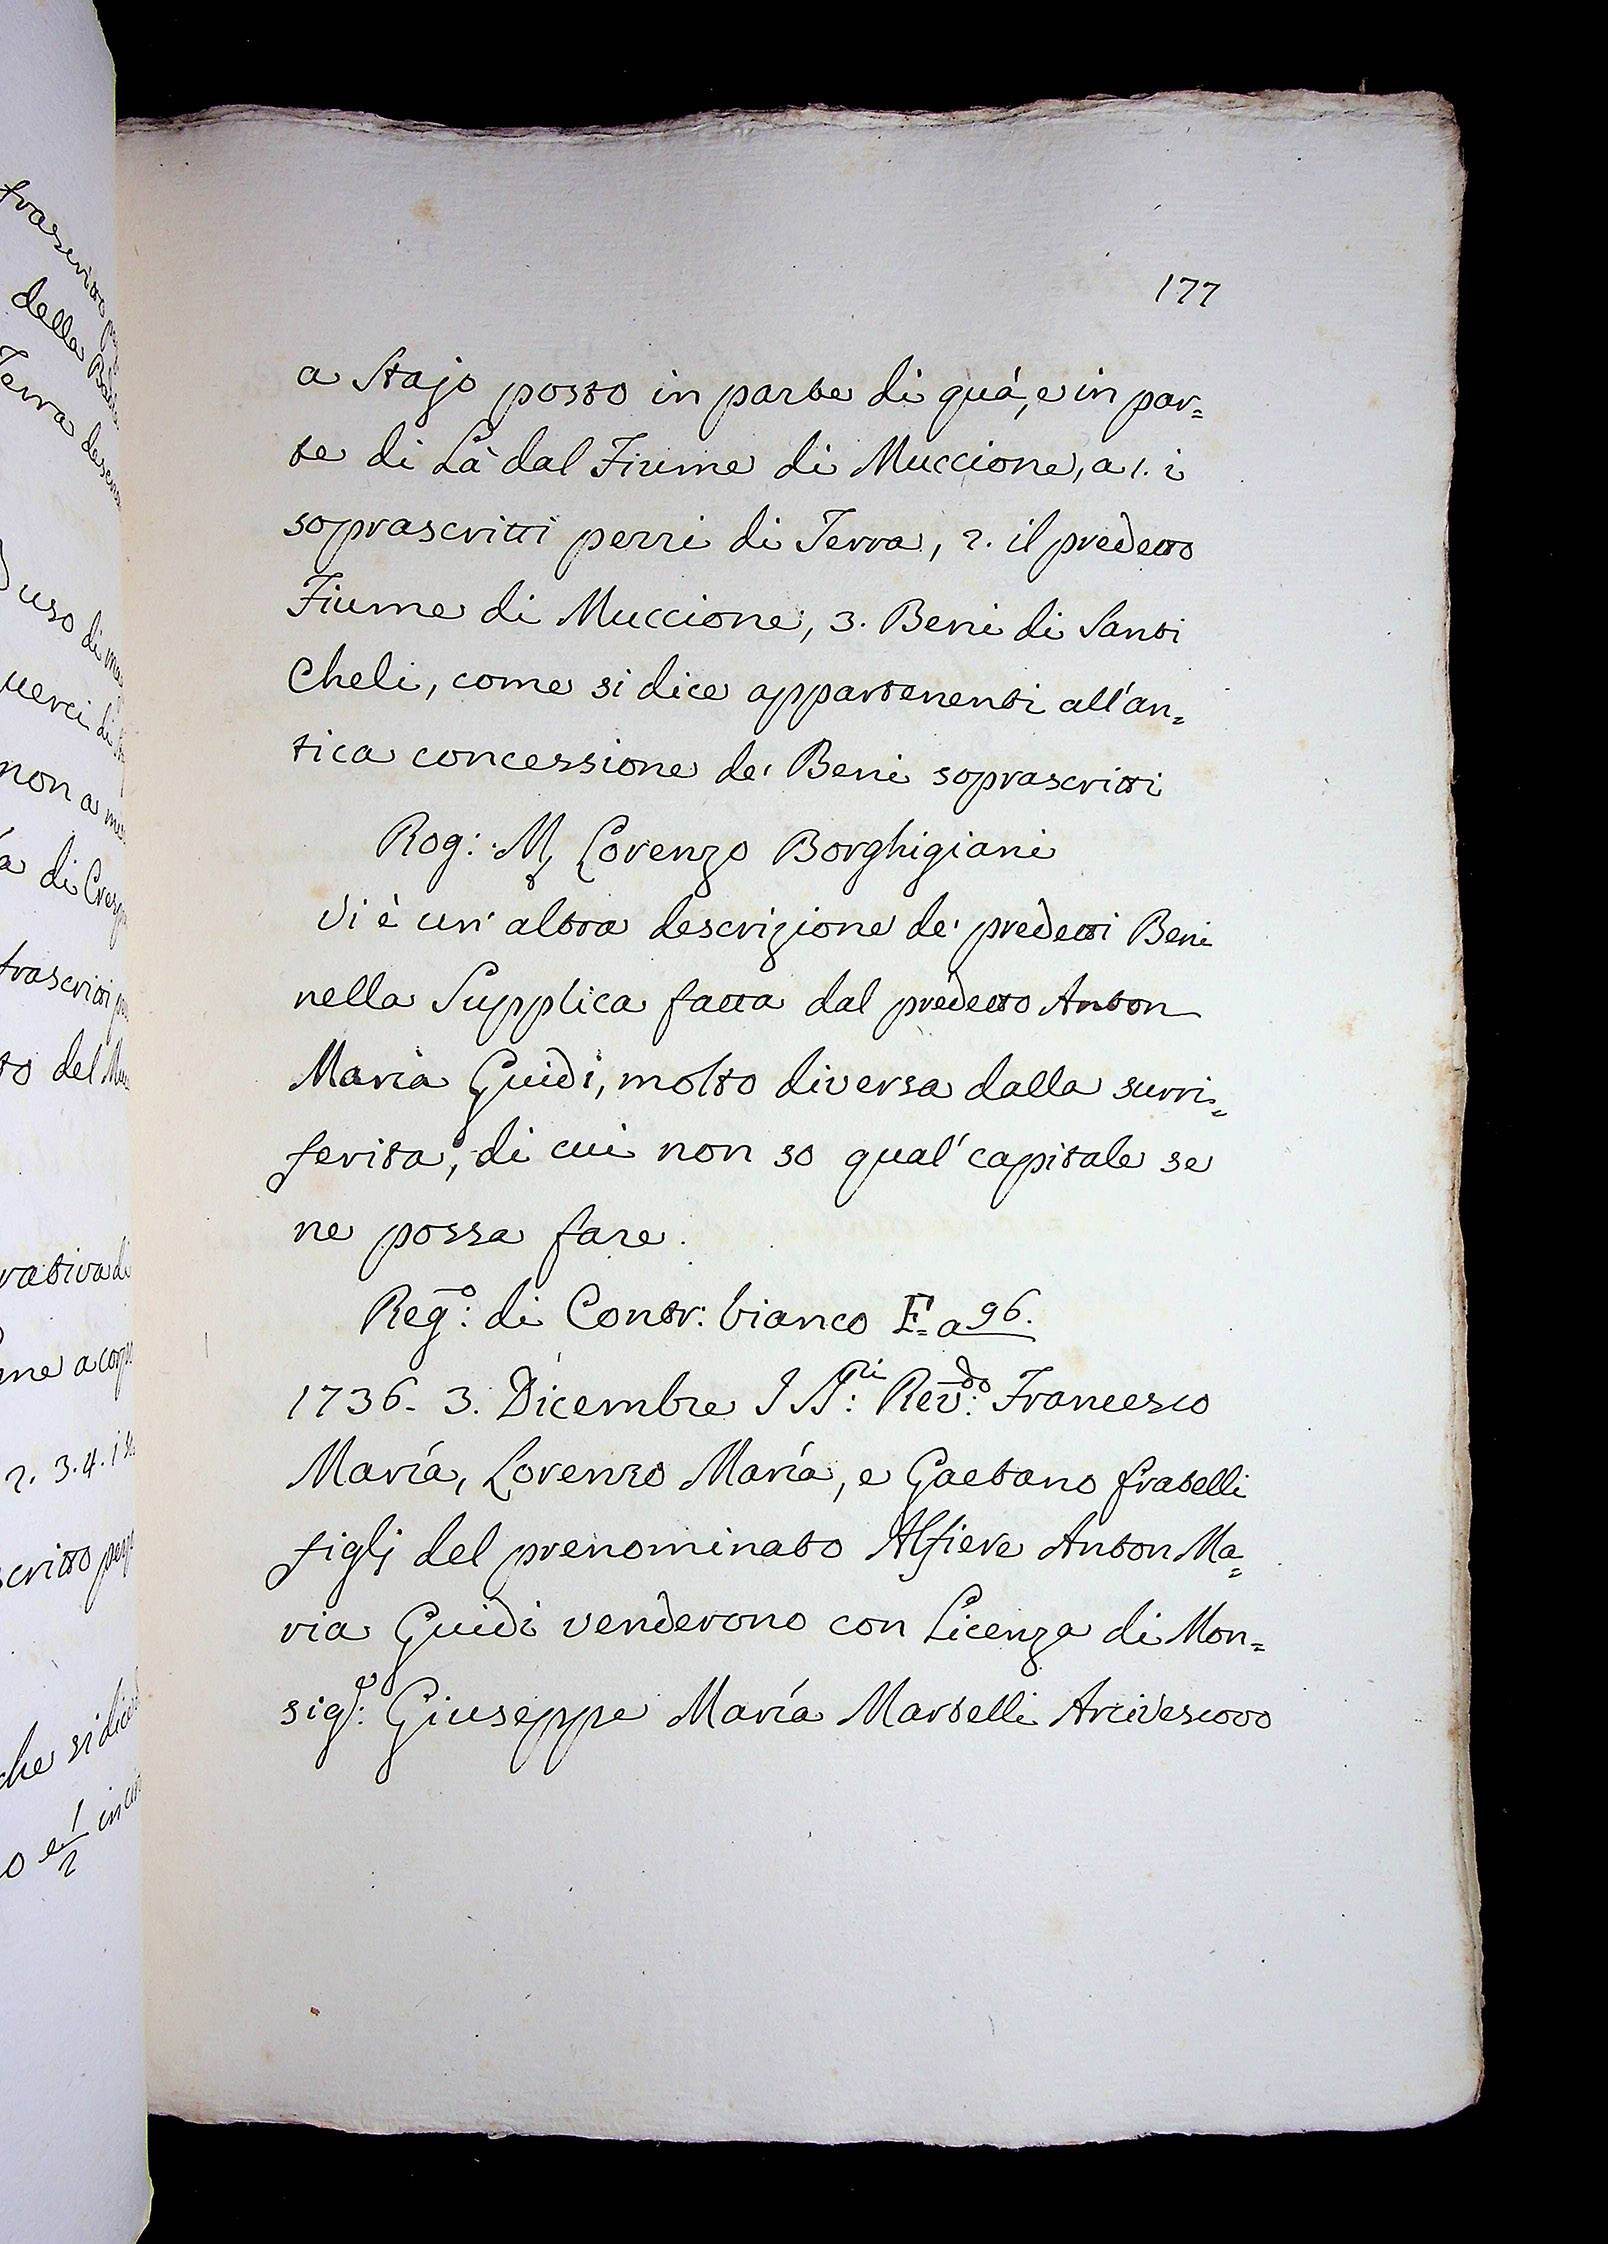 177
a Stajo posto in parte di quá, e in par=
te di Là dal Fiume di Muccione, a 1. i
soprascritti pezzi di Terra, 2. il predetto
Fiume di Muccione, 3. Beni di Santi
Cheli, come si dice appartenenti all'an=
tica concessione de' Beni soprascritti
Rog: M Lorenzo Borghigiani
Vi è un' altra descrizione de' predetti Beni
nella Supplica fatta dal predetto Anton
Maria Guidi, molto diversa dalla surri=
ferita, di cui non so qual' capitale se
ne possa fare.
Reg.o: di Contr: bianco E= a 96.
1736. 3. Dicembre I Rev.do: Francesco
María, Lorenzo María, e Gaetano fratelli
figlj del prenominato Alfiere Anton Ma=
ria Guidi venderono con Licenza di Mon=
sig.r: Giuseppe María Martelli Arcivescovo
della
Terra
uso di
non a
di
trascritti
to del
rativa di
2. 3. 4. i
scritto
che si dice
o e 1/2 in